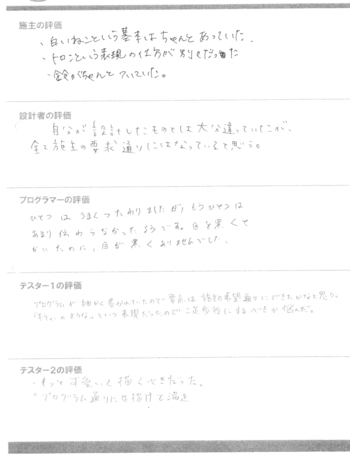 施主の評価
・白いねこという基本はちゃんとあっていた。
・トロンという表現の仕方が別モだった
・鈴がちゃんとついていた。
設計者の評価
自分が設計したものとは大分違っていたが、
全て施主の要求通りにはなっていると思う。
プログラマーの評価
ひとつはうまくつたわりましたが、もうひとつは
あまり伝わらなかったようです。目を黒くて
かいたのに、目が黒くありませんでした。
テスター1の評価
プログラムが細かく書かれていたので
のような。という表現だったので
テスター2の評価
・もっと可愛いく描くべきだった。
・プログラム通りに